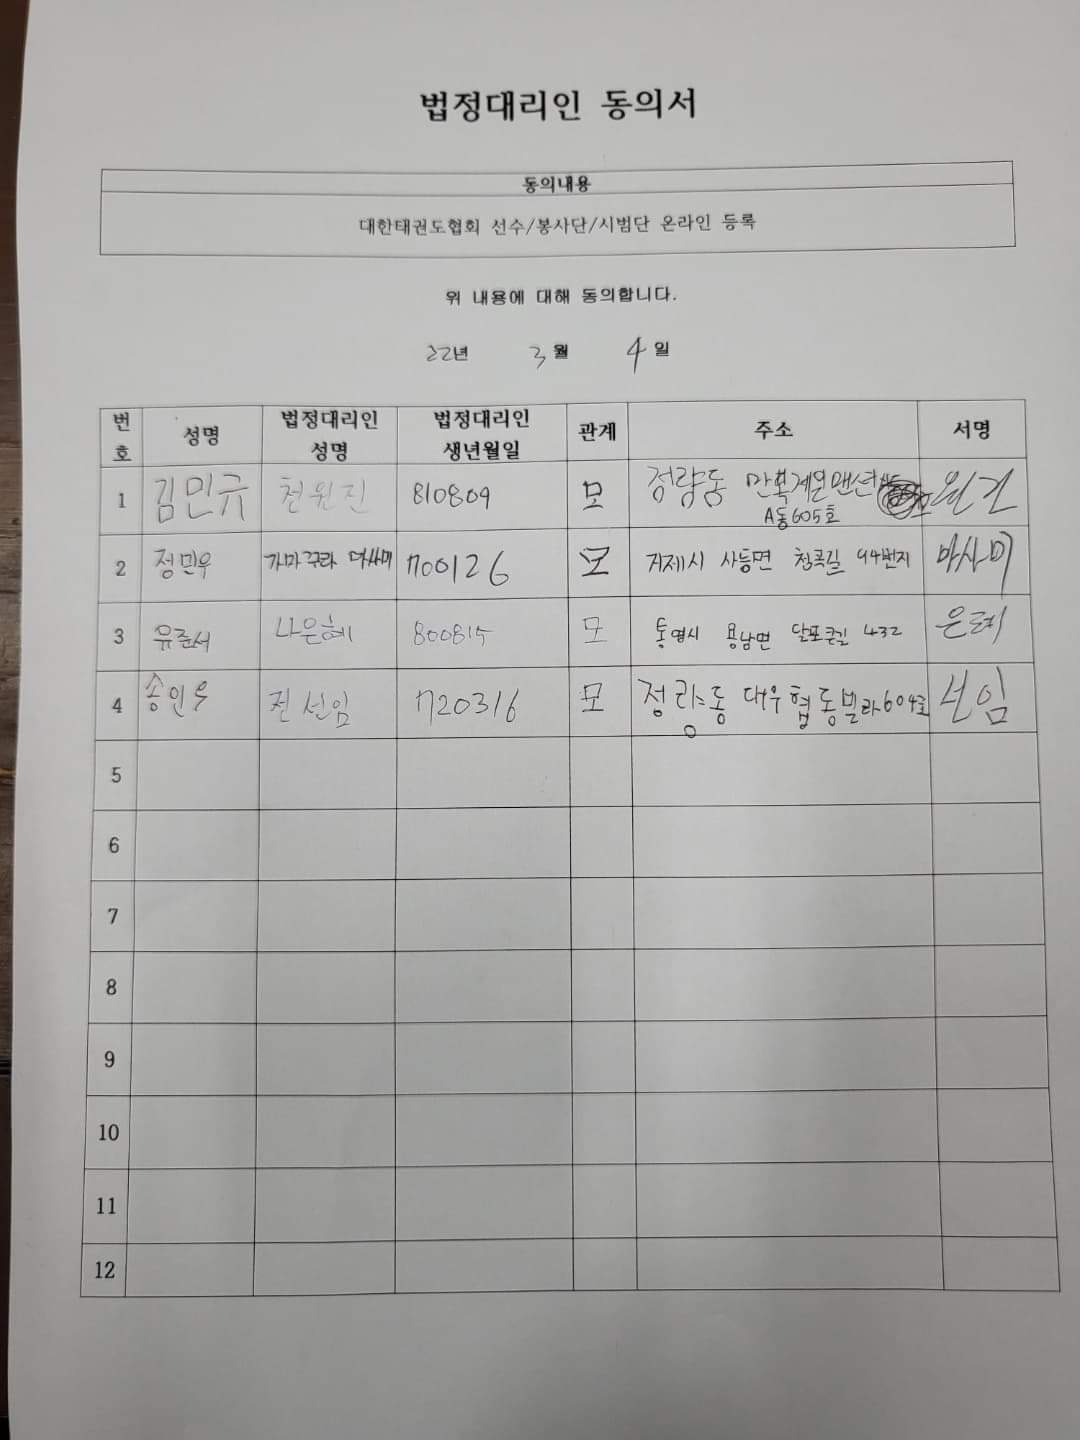 법정대리인 동의서
동의내용
대한태권도협회 선수/봉사단/시범단 온라인 등록
위 내용에 대해 동의합니다.
22년 3월 4일
번호 성명 법정대리인 성명 법정대리인 생년월일 관계 주소 서명
1 김민규 천원진 810809 모 정량동 만복계일맨션 A동605호
2 정민우 가마꾸라 마사미 700126 모 거제시 사등면 청곡길 94번지 마사미
3 유준서 나은혜 800815 모 통영시 용남면 달포큰길 432 은혜
4 송인우 전선임 720316 모 정량동 대우협동빌라604호 선임
5
6
7
8
9
10
11
12